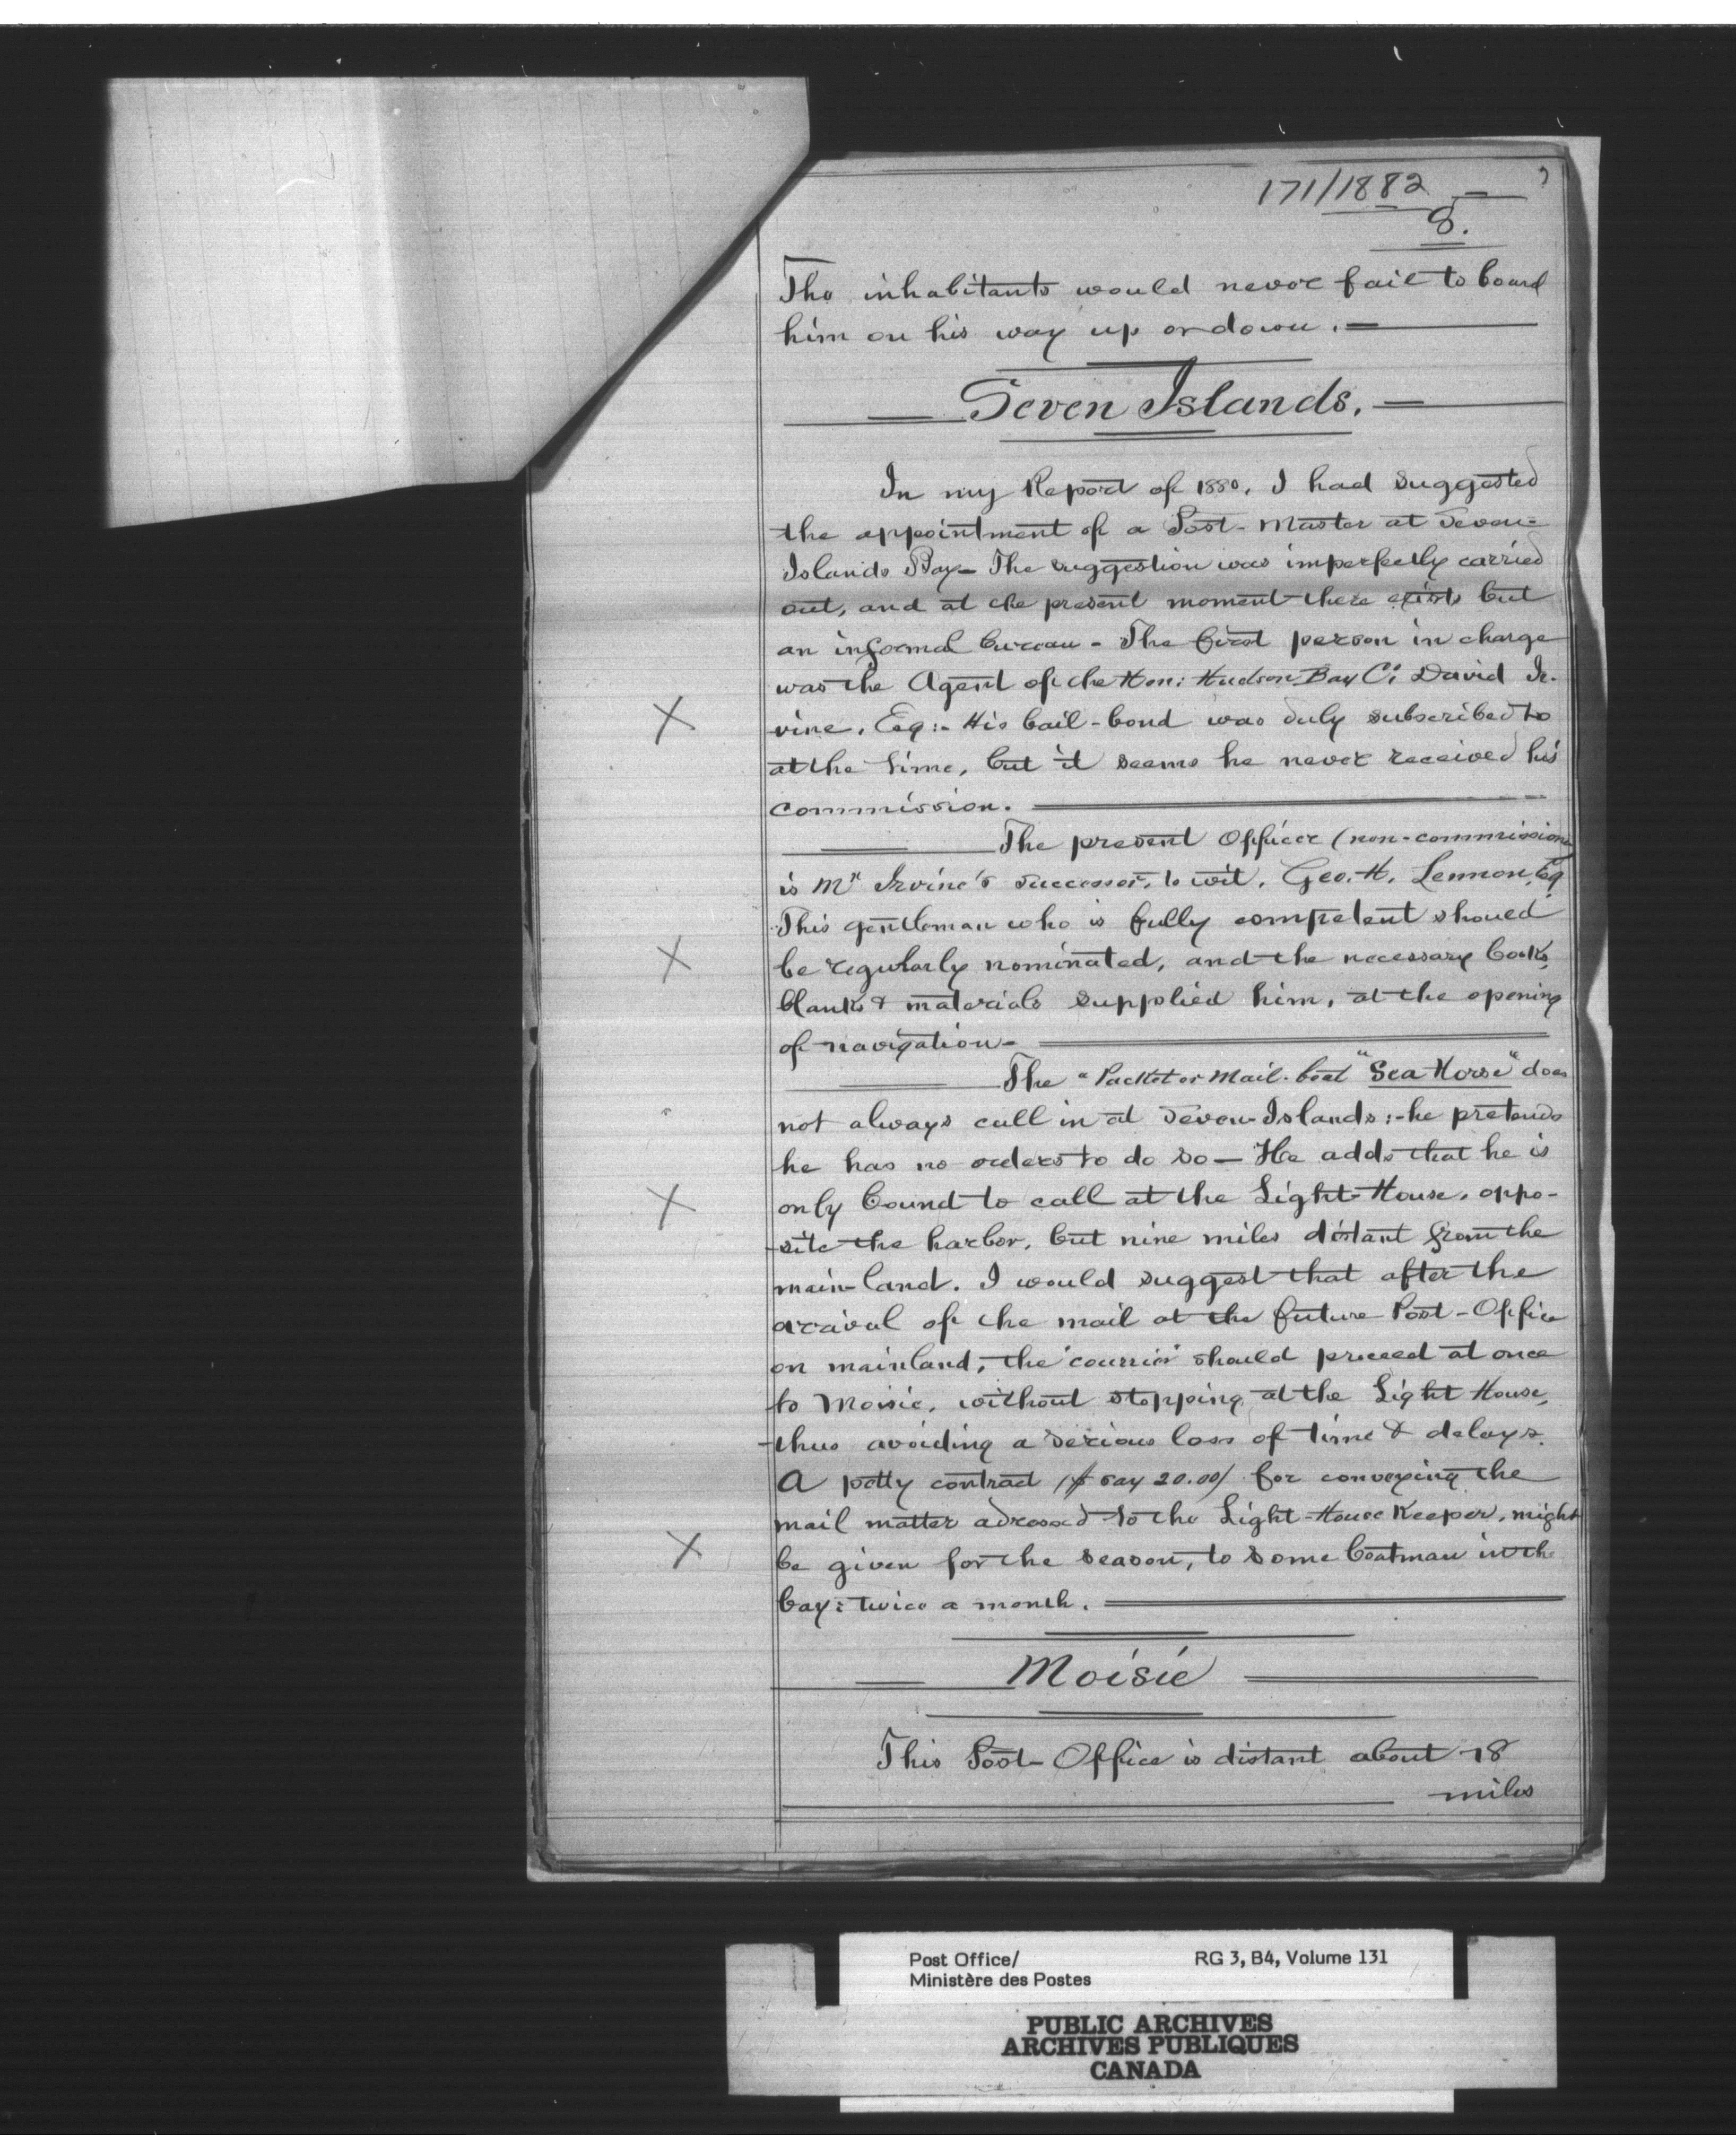 171/1882
8.
The inhabitants would never fail to board
him on his way up or down.
Seven Islands.
In my Report of 1880, I had suggested
the appointment of a Post-Master at Seven-
Islands Bay - The suggestion was imperfectly carried
out, and at the present moment there exists but
an informal bureau - The first person in charge
was the Agent of the Hon: Hudson Bay Co: David Ir-
vine, Esq:- His bail-bond was duly subscribed to
at the time, but it seems he never received his
commission.
The present Officer (non-commission
is Mr Irvine's successor, to wit, Geo. H. Lennon, Eq
This gentleman who is fully competent should
be regularly nominated, and the necessary books,
blanks & materials supplied him, at the opening
of navigation -
The "Packet or Mail-boat "Sea Horse" does
not always call in at Seven-Islands :- he pretends
he has no orders to do so - He adds that he is
only bound to call at the Light-House, oppo-
-site the harbor, but nine miles distant from the
main-land. I would suggest that after the
arrival of the mail at the future Post-Office
on mainland, the "courrier" should proceed at once
to Moisie, without stopping at the Light House,
thus avoiding a serious loss of time & delays.
A petty contract ($ say 20.00) for conveying the
mail matter adressed to the Light-House Keeper, might
be given for the season, to some boatman in the
bay: twice a month.
Moisie
This Post-Office is distant about 18
miles
Post Office/
Ministère des Postes
RG 3, B4, Volume 131
PUBLIC ARCHIVES
ARCHIVES PUBLIQUES
CANADA